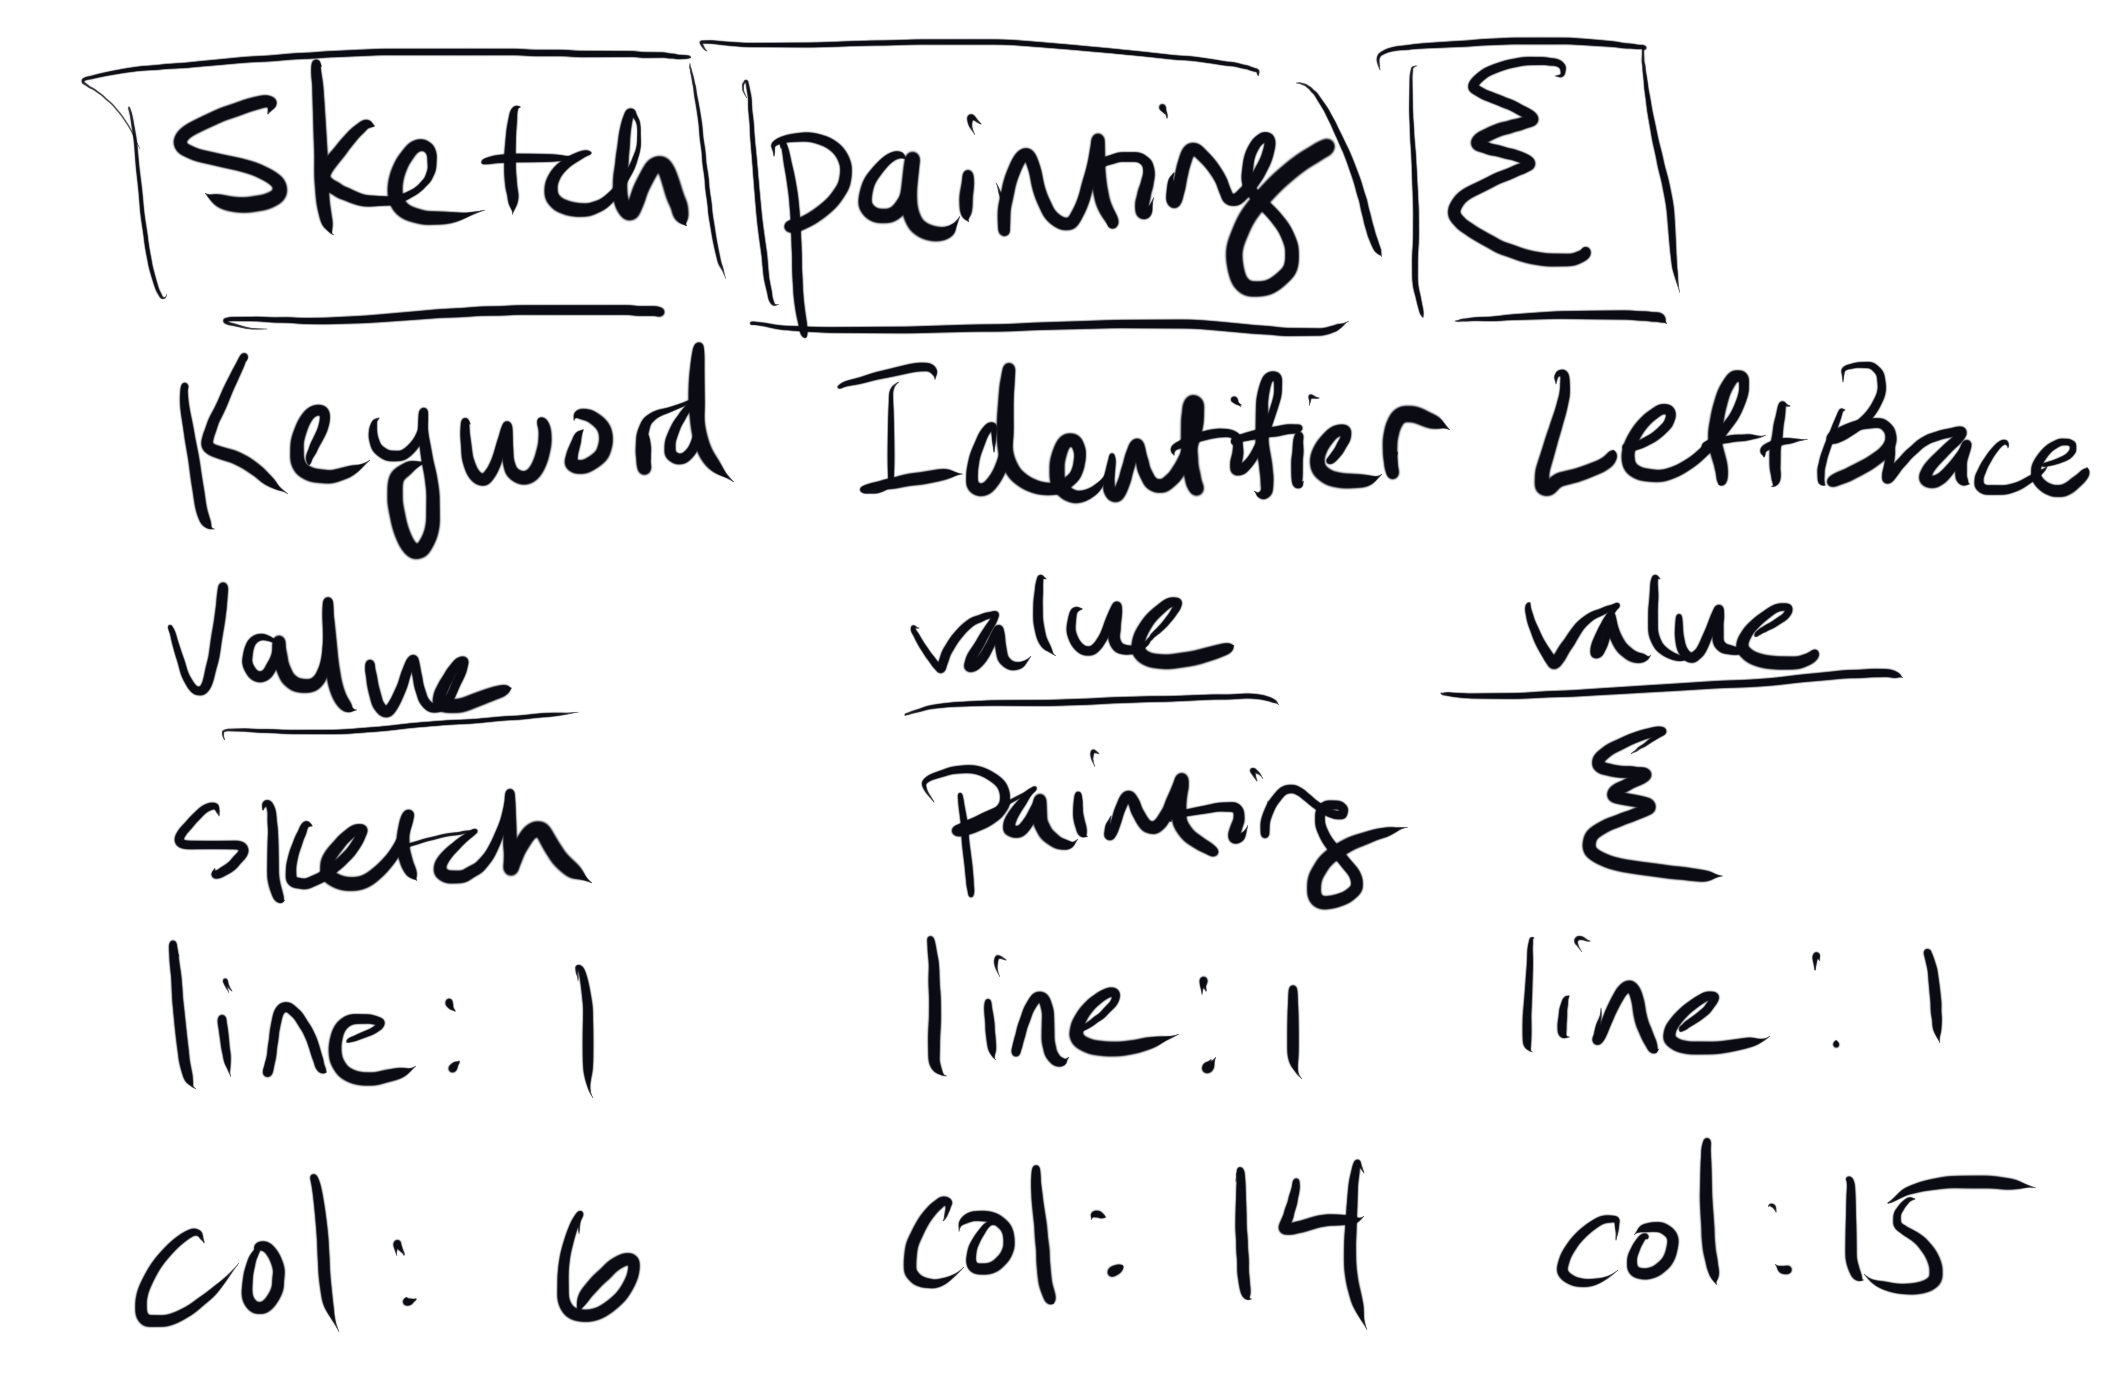 Sketch painting {
Keyword Identifier LeftBrace
Value value value
sketch painting {
line: 1 line: 1 line: 1
col: 6 col: 14 col: 15